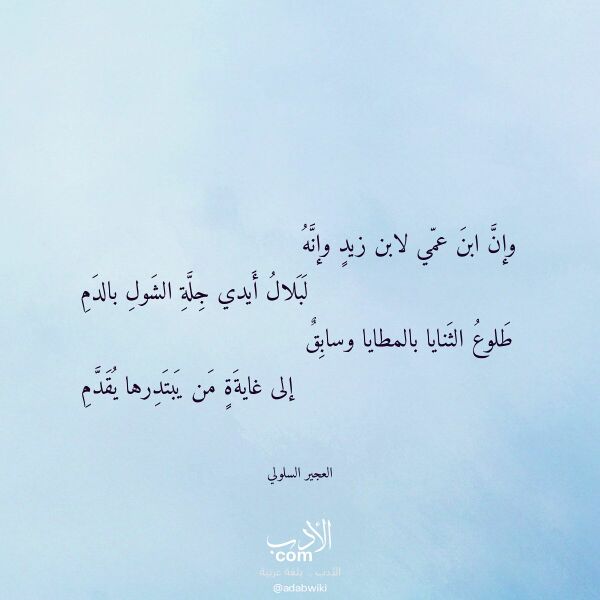 وإِنَّ ابنَ عمّي لابن زيدٍ وإنَّهُ
لَبَلالُ أَيدي جِلَّةِ الشَولِ بالدَمِ
طَلوعُ الثَنايا بالمطايا وسابِقٌ
إلى غايةَةٍ مَن يَبتَدِرها يُقَدَّمِ
العجير السلولي
الأدب
com
الأدب .. بلغة عربية
@adabwiki